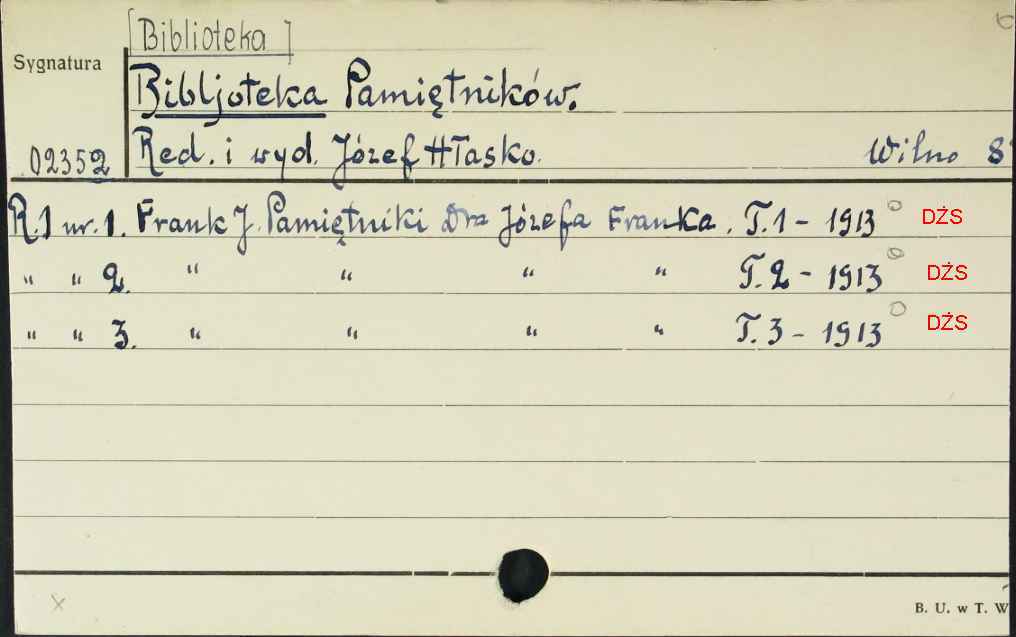 [Biblioteka]
Sygnatura
Bibljoteka Pamiętników.
02352 Red. i wyd. Józef Hłasko. Wilno 8°
R.1 nr. 1. Frank J. Pamiętniki Dra Józefa Franka. T.1 - 1913 DŻS
" " 2. " " " " T.2 - 1913 DŻS
" " 3. " " " " T.3 - 1913 DŻS
x
B. U. w T. W